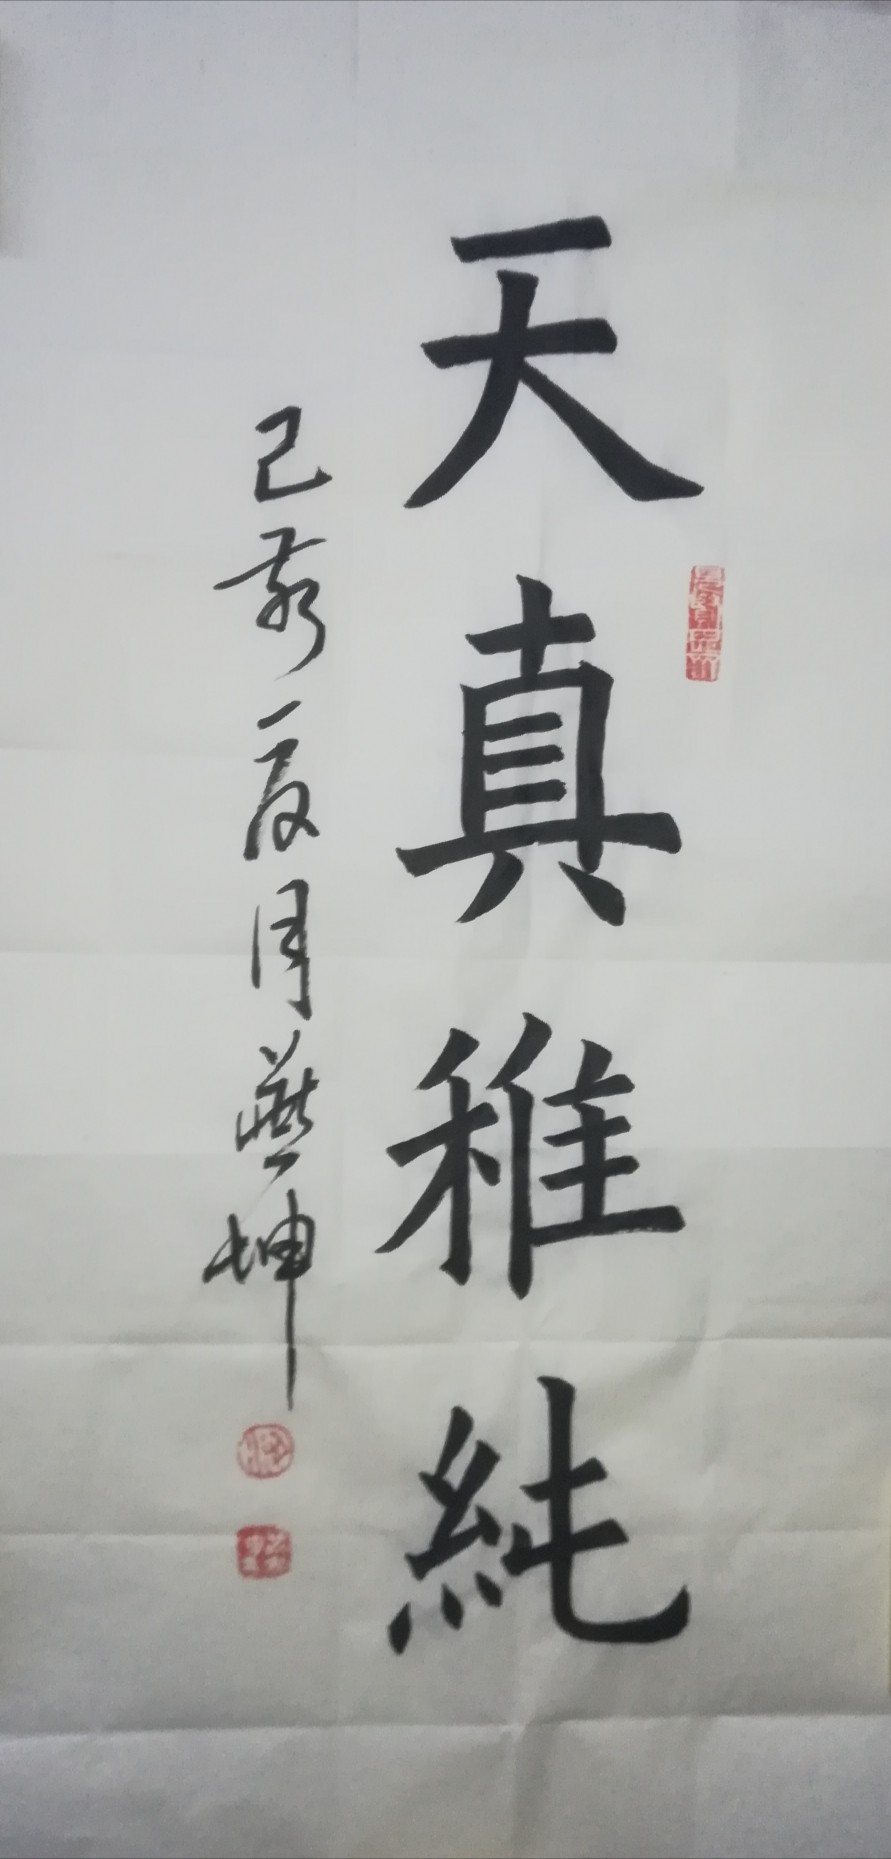 天真稚純
己亥夏月燕坤